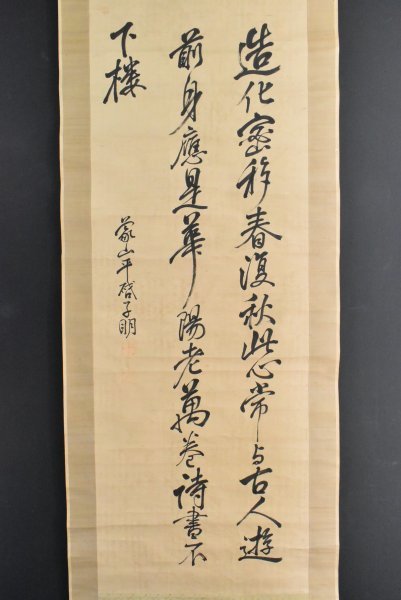 造化密移春復秋此心常与古人遊
前身應是華陽老萬卷詩書不
下楼
蒙山平啓子明